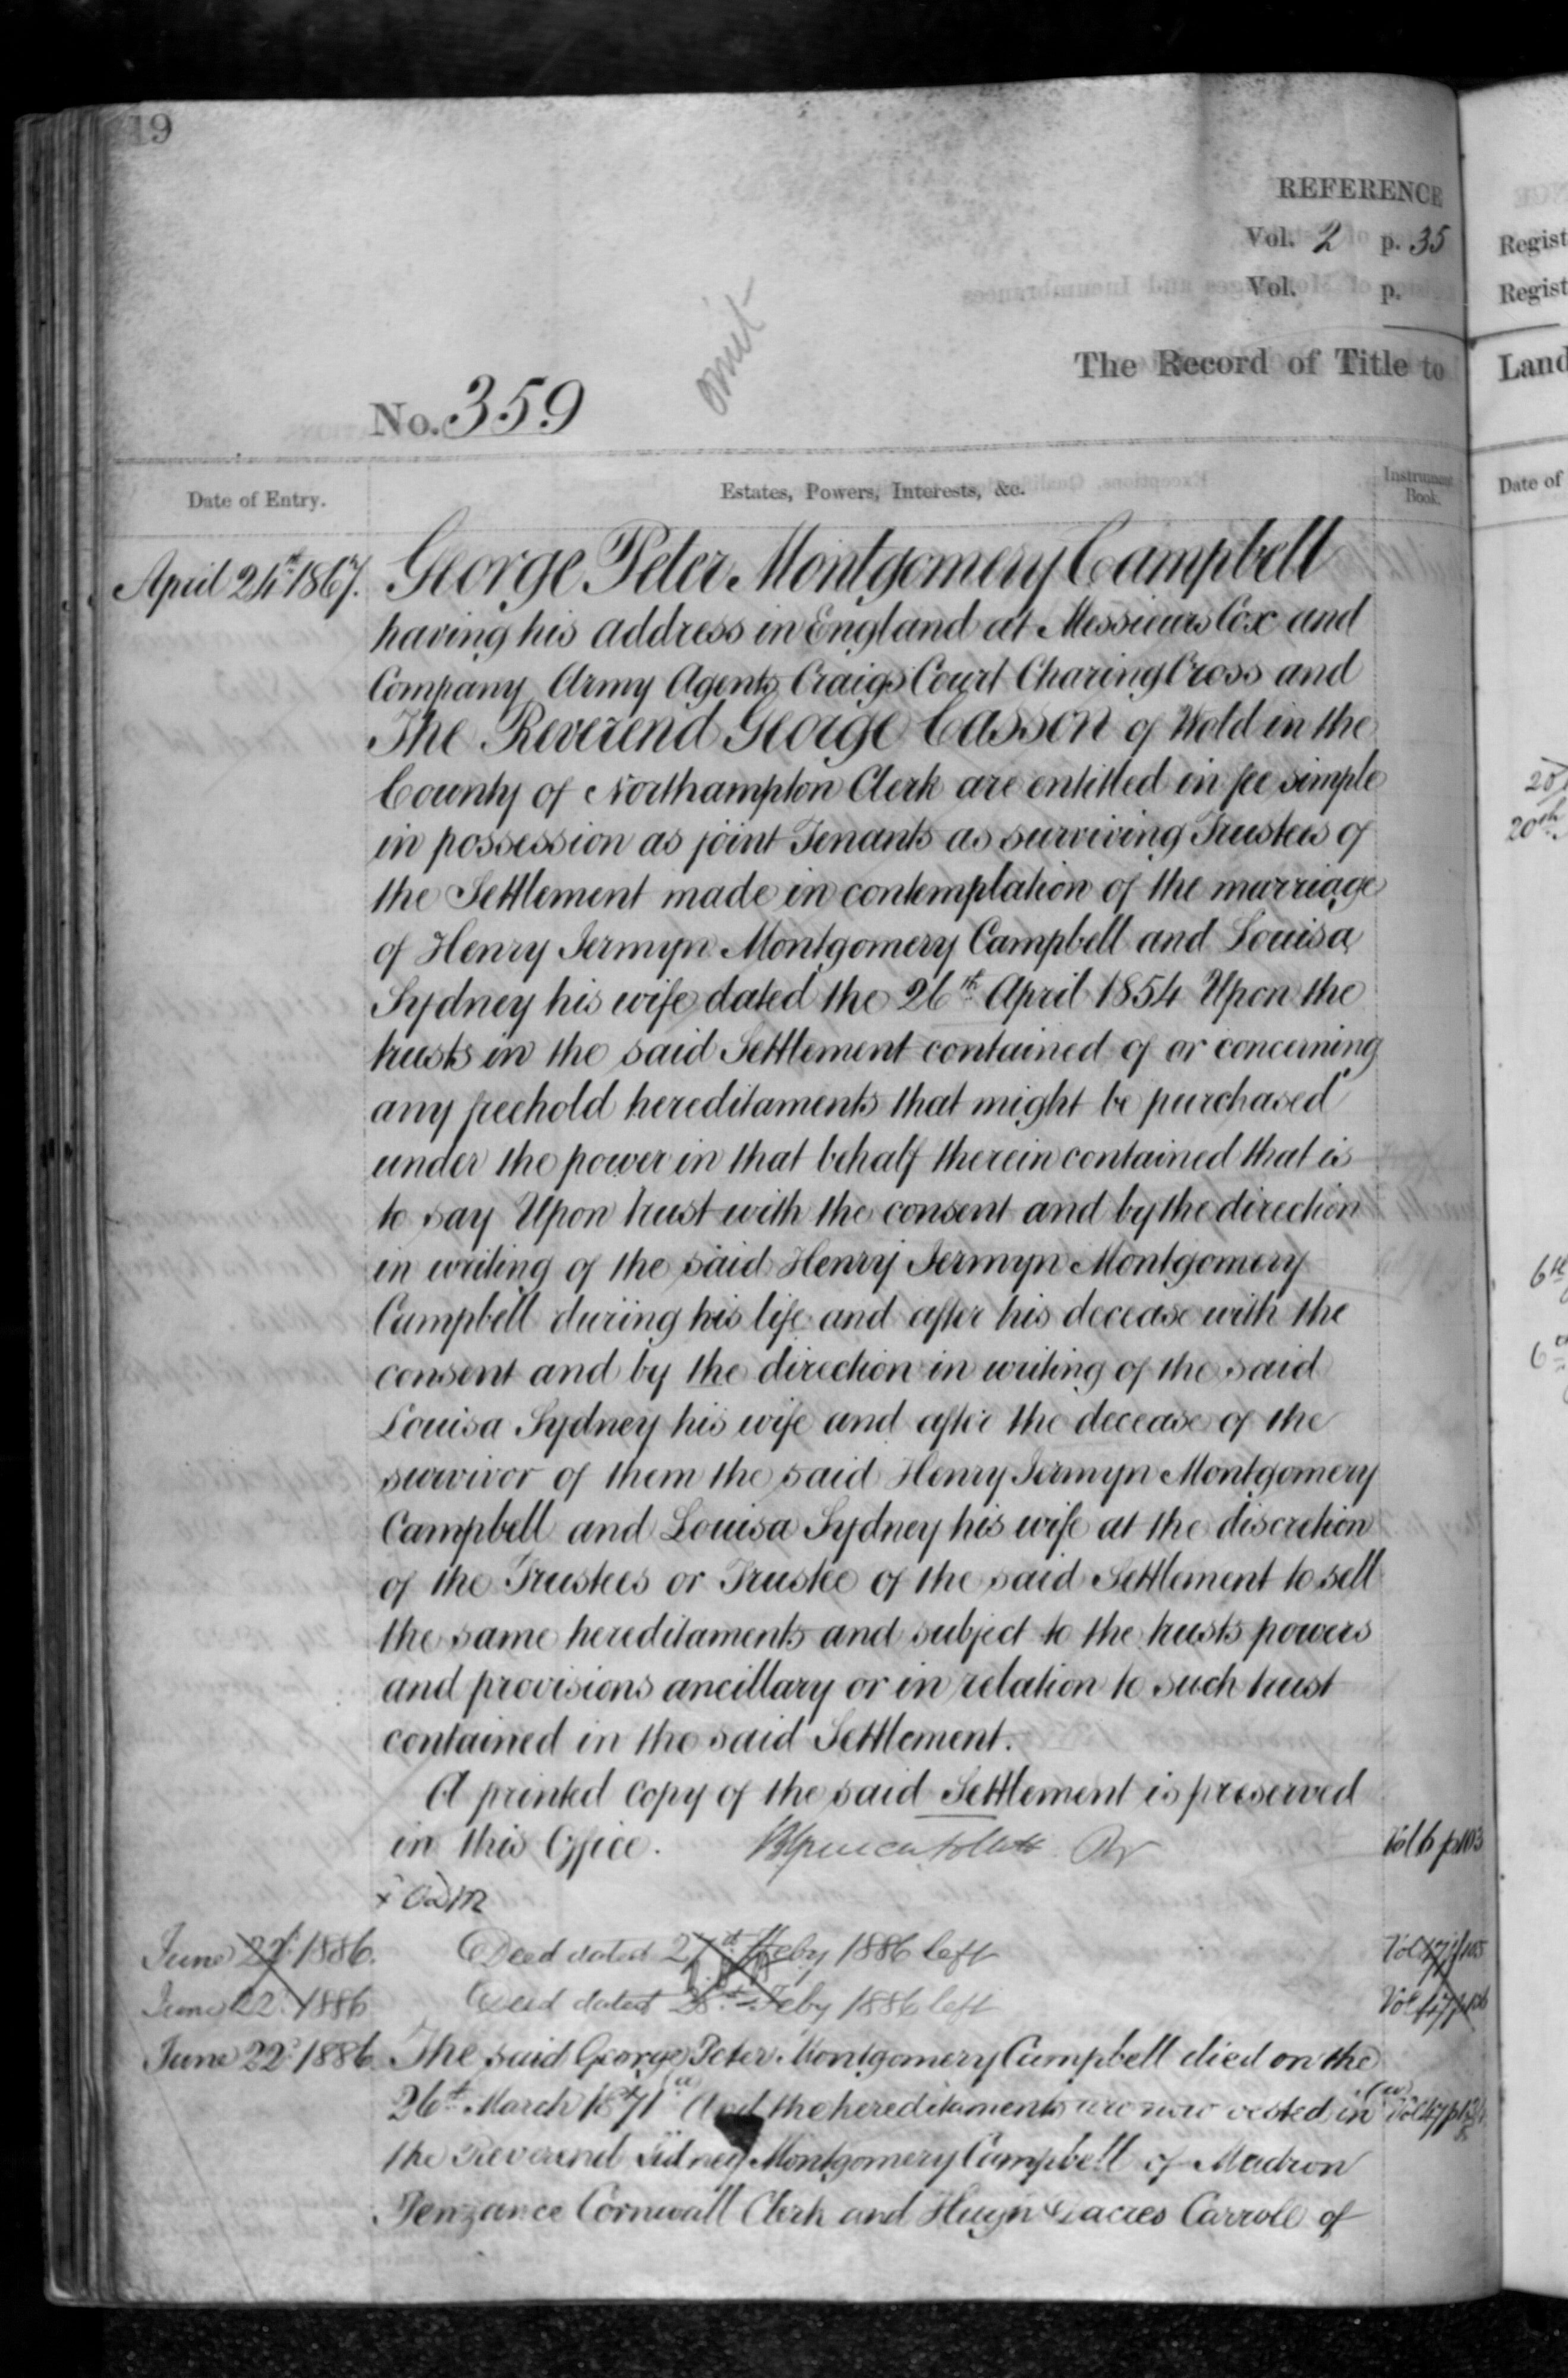 19
REFERENCE
Vol. 2 p. 35
Vol. p.
omit
The Record of Title to
No. 359
Date of Entry.
Estates, Powers, Interests, &c.
Instrument Book.
April 24th 1867.
George Peter Montgomery Campbell
having his address in England at Messieurs Cox and
Company Army Agents Craigs Court Charing Cross and
The Reverend George Casson of Wold in the
County of Northampton Clerk are entitled in fee simple
in possession as joint Tenants as surviving Trustees of
the Settlement made in contemplation of the marriage
of Henry Jermyn Montgomery Campbell and Louisa
Sydney his wife dated the 26th April 1854 Upon the
trusts in the said Settlement contained of or concerning
any freehold hereditaments that might be purchased
under the power in that behalf therein contained that is
to say Upon trust with the consent and by the direction
in writing of the said Henry Jermyn Montgomery
Campbell during his life and after his decease with the
consent and by the direction in writing of the said
Louisa Sydney his wife and after the decease of the
survivor of them the said Henry Jermyn Montgomery
Campbell and Louisa Sydney his wife at the discretion
of the Trustees or Trustee of the said Settlement to sell
the same hereditaments and subject to the trusts powers
and provisions ancillary or in relation to such trust
contained in the said Settlement.
A printed copy of the said Settlement is preserved
in this Office.
June 22d 1886. Deed dated Feby 1886 left
June 22 1886 Deed dated Feby 1886 left
June 22d 1886 The said George Peter Montgomery Campbell died on the
26th March 1871 And the hereditaments are now vested in
the Reverend Sidney Montgomery Campbell of Madron
Penzance Cornwall Clerk and Carroll of
Regist
Regist
Land
Date of
20th